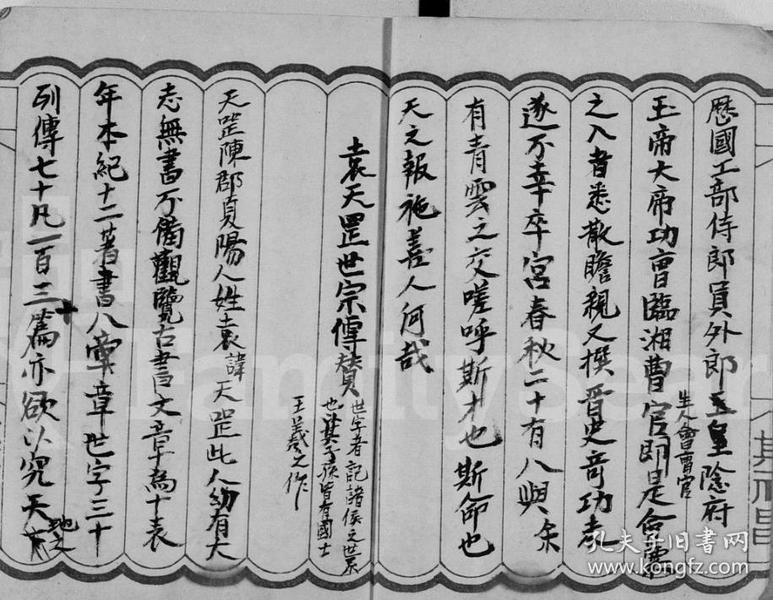 歷國工部侍郎員外郎玉皇陰府
玉帝大帝功曹臨湘曹官即是合
生人會曹官
之入者悉散瞻親又撰晉史奇功
遂不幸卒宮春秋二十有八與余
有青雲之交嗟呼斯才也斯命也
天之報施善人何哉
袁天罡世宗傳贊
世字者記諸侯之世系
也其子孫皆有國士
王羲之作
天罡陳郡夏陽人姓袁諱天罡此人幼有大
志無書不備觀覽古書文章為十表
年本紀十二著書八章章世字三十
列傳七十凡一百三十篇亦欲以究天
地之
孔夫子旧书网
www.kongfz.com
FamilySear